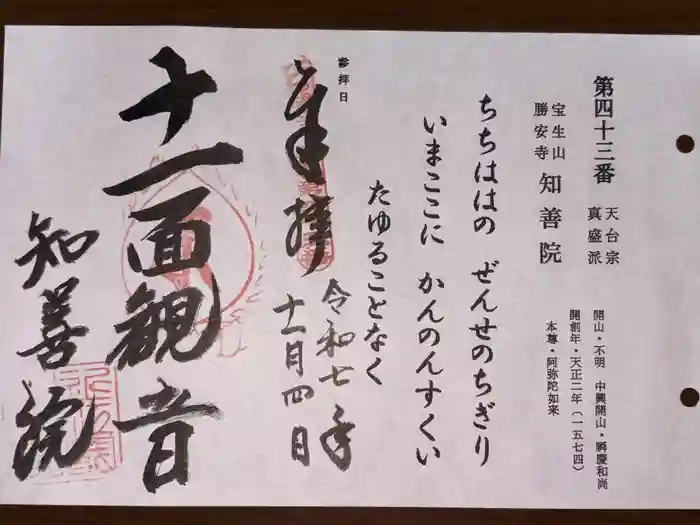 第四十三番
天台宗
真盛派
宝生山
勝安寺
知善院
開山・不明　中興開山・舜慶和尚
開創年・天正二年（一五七四）
本尊・阿弥陀如来
ちちははの　ぜんせのちぎり
いまここに　かんのんすくい
たゆることなく
参拝日
奉拝
令和七年
十一月四日
十一面観音
知善院